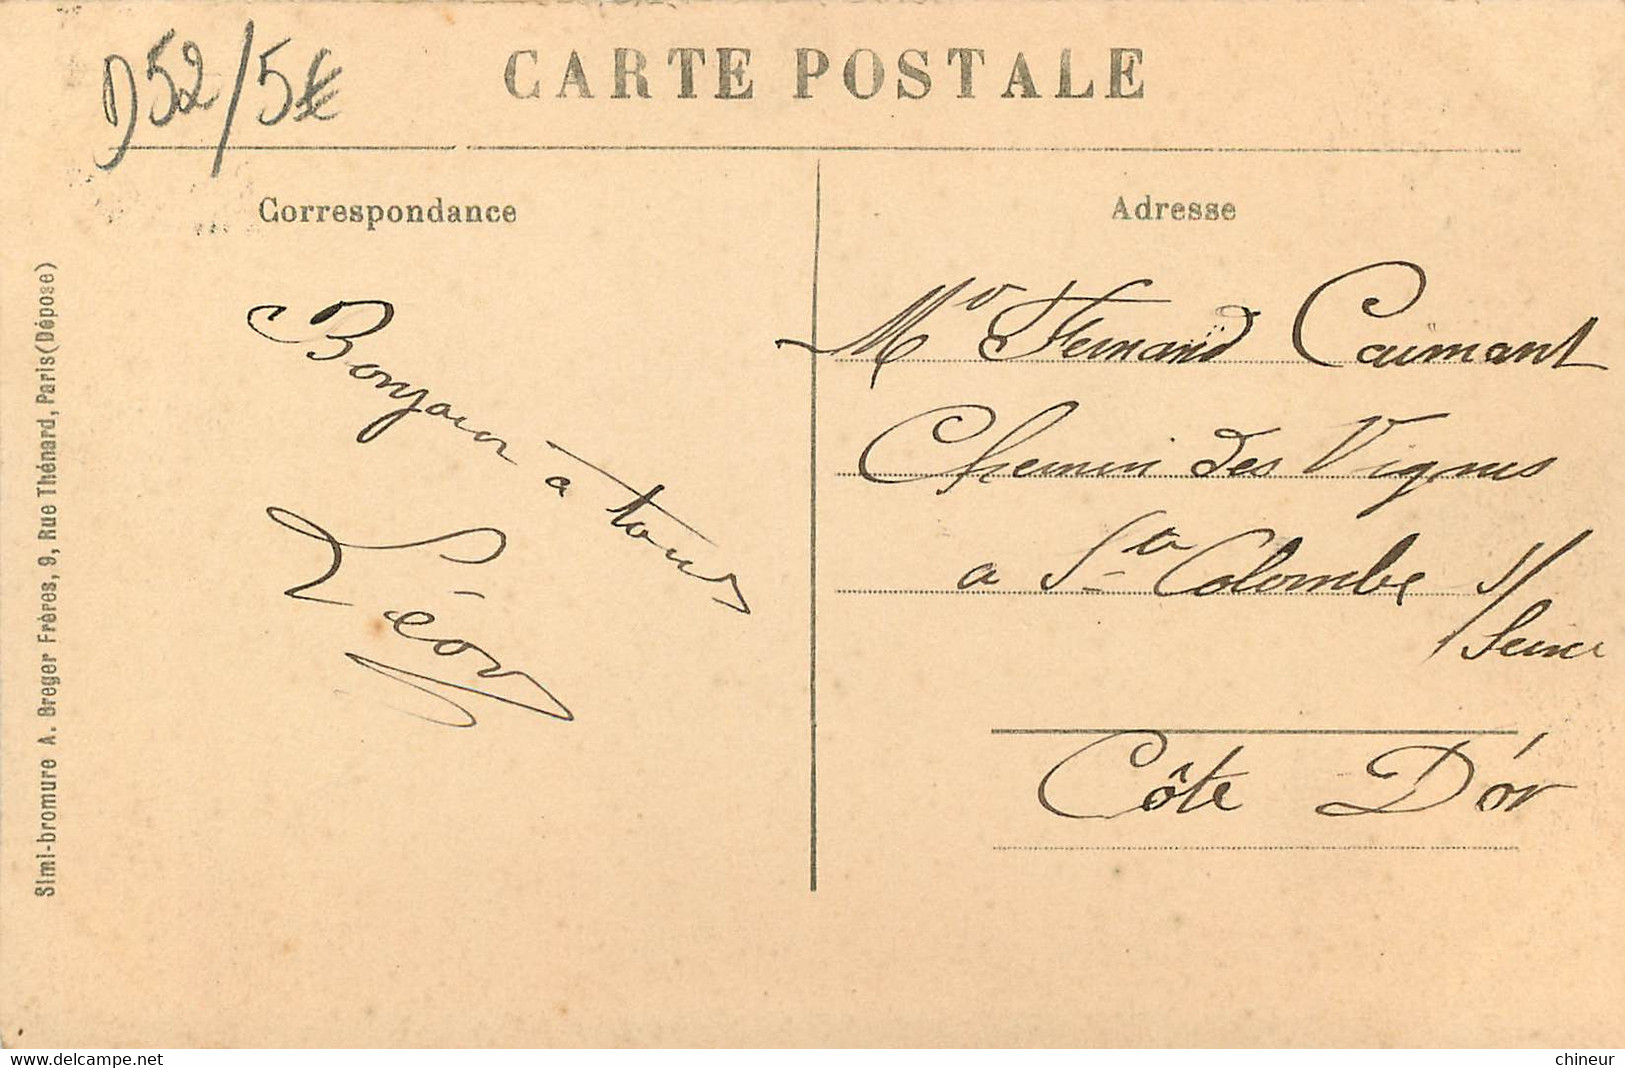 D52/5€
CARTE POSTALE
Correspondance
Adresse
Bonjour à tous
Léon
Mr Fernand Caumont
Chemin des Vignes
a Ste Colombe s/
Seine
Côte D'or
Simi-bromure A. Breger Frères, 9, Rue Thénard, Paris (Déposé)
www.delcampe.net
chineur